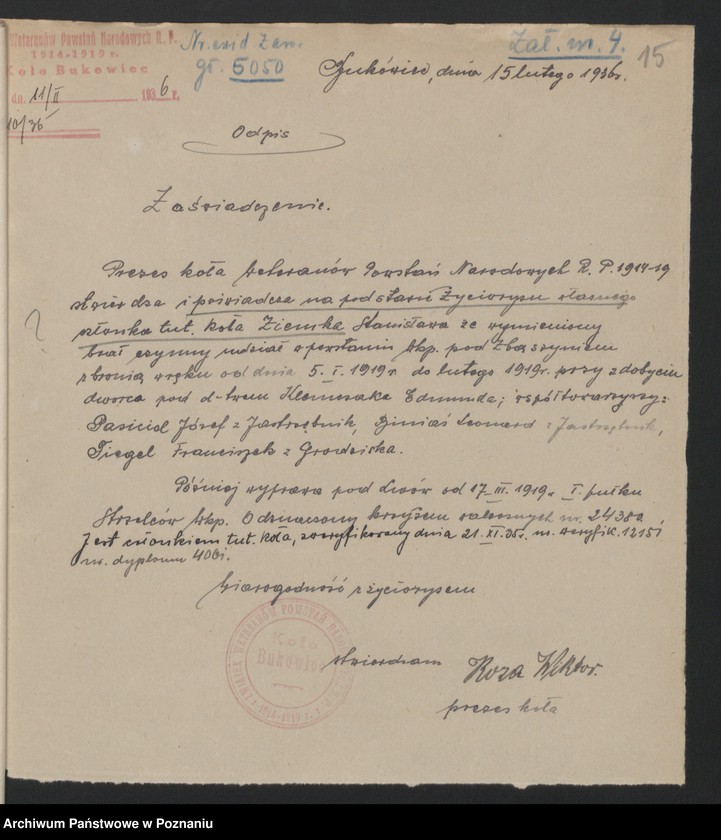 Weteranów Powstań Narodowych R. P.
1914-1919 r.
Koło Bukowiec
dn. 11/II 1936 r.
10/36
Nr. ewid Zew.
gr. 5050
Zał. nr. 4.
15
Bukówiec, dnia 15 lutego 1936r.
Odpis
Zaświadczenie.
Prezes koła Weteranów Powstań Narodowych R. P. 1914-19
stwierdza i poświadcza na podstawie życiorysu własnego
członka tut. koła Ziemska Stanisława że wymieniony
brał czynny udział w powstaniu Wkp. pod Zbąszyniem
z bronią w ręku od dnia 5. I. 1919r do lutego 1919r. przy zdobyciu
dworca pod d-twem Klemczaka Edmunda; współtowarzysze:
Józef z Jastrzębnik, Leonard z Jastrzębnik,
Fiegel Franciszek z Grodziska.
Później wyprawa pod Lwów od 17-III. 1919r. I. pułku
Strzelców Wkp. Odznaczony krzyżem walecznych nr. 24382
Jest członkiem tut. Koła, zweryfikowany dnia 21. XI. 35r. nr. weryfik. 12151
nr. dyplomu 4001.
Wiarogodność z życiorysem
stwierdzam
Koza Wiktor.
prezes koła
Koło
Bukowiec
Archiwum Państwowe w Poznaniu